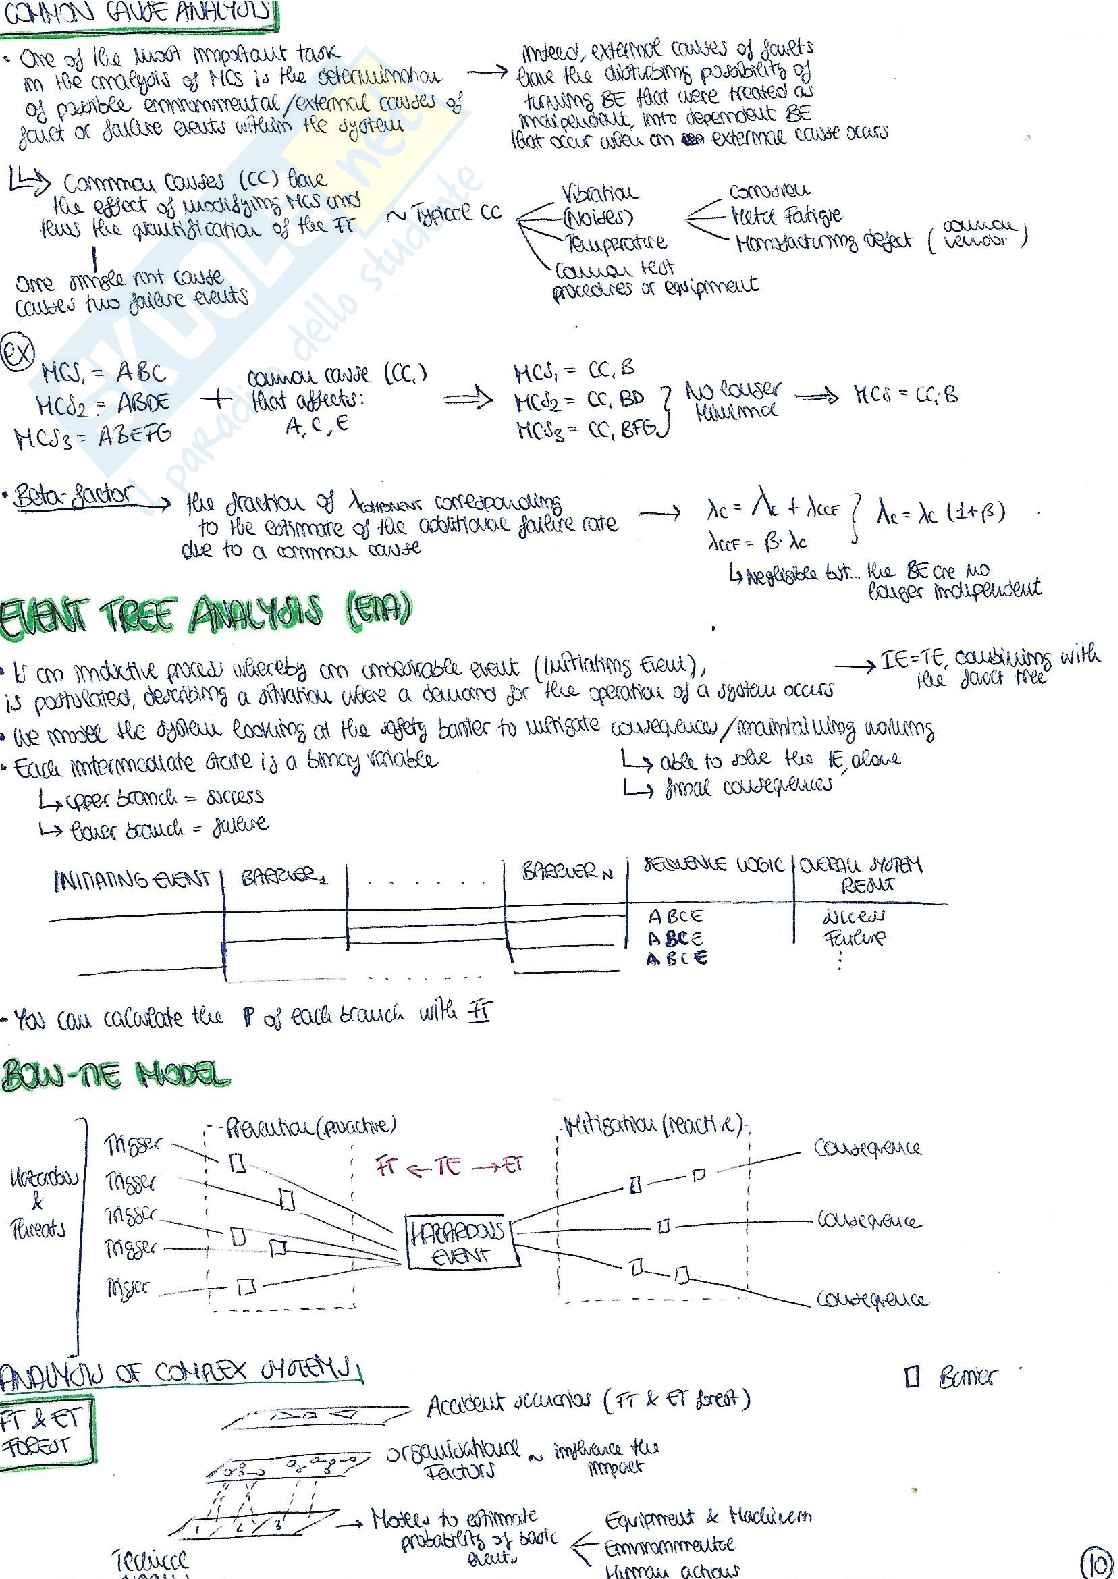 COMMON CAUSE ANALYSIS
• One of the most important task
in the analysis of MCS is the determination
of possible environmental/external causes of
fault or failure events within the system
Indeed, external causes of faults
have the disturbing possibility of
turning BE that were treated as
independent, into dependent BE
that occur when an external cause occurs
Common causes (CC) have
the effect of modifying MCS and
thus the quantification of the FT
One single root cause
causes two failure events
~ Typical CC
Vibration
(Noises)
Temperature
Common test
procedures or equipment
Corrosion
Metal Fatigue
Manufacturing defect (common
vendor)
EX
MCS₁ = ABC
MCS₂ = ABDE
MCS₃ = ABEFG
+
common cause (CC₁)
that affects:
A, C, E
MCS₁ = CC₁B
MCS₂ = CC₁BD
MCS₃ = CC₁BFG
No longer
minimal
MCS = CC₁B
• Beta-factor
the fraction of λcomponent corresponding
to the estimate of the additional failure rate
due to a common cause
λc = λc + λCCF
λCCF = β·λc
λc = λc (1+β)
negligible but... the BE are no
longer independent
EVENT TREE ANALYSIS (ETA)
• Is an inductive process whereby an undesirable event (Initiating Event),
is postulated, describing a situation where a demand for the operation of a system occurs
IE=TE, combining with
the fault tree
• We model the system looking at the safety barrier to mitigate consequences/maintaining working
• Each intermediate state is a binary variable
upper branch = success
lower branch = failure
able to solve the IE, alone
final consequences
INITIATING EVENT
BARRIER₁
. . . . . .
BARRIER N
SEQUENCE LOGIC
OVERALL SYSTEM
RESULT
ABCE
success
ABCE
Failure
ABCE
⋮
- You can calculate the P of each branch with FT
BOW-TIE MODEL
Hazards
&
Threats
Trigger
Trigger
Trigger
Trigger
Trigger
Prevention (proactive)
FT ← TE → ET
HAZARDOUS
EVENT
Mitigation (reactive)
Consequence
Consequence
Consequence
Barrier
ANALYSIS OF COMPLEX SYSTEMS
FT & ET
FOREST
Accident scenarios (FT & ET forest)
Organisational
Factors
~ influence the
impact
1 2 3
Models to estimate
probability of basic
event
Equipment & Machinery
Environmental
Human actions
Technical
10
SKUOLA.net
il paradiso dello studente